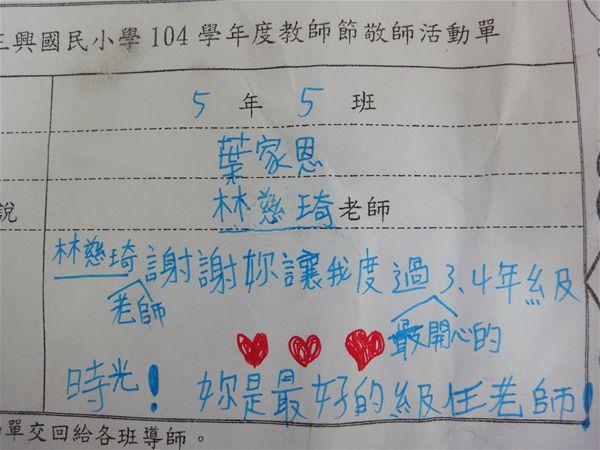 三興國民小學104學年度教師節敬師活動單
5年5班
葉家恩
說
林慈琦老師
林慈琦老師謝謝妳讓我度過最開心的3、4年級
時光！妳是最好的級任老師！
單交回給各班導師。